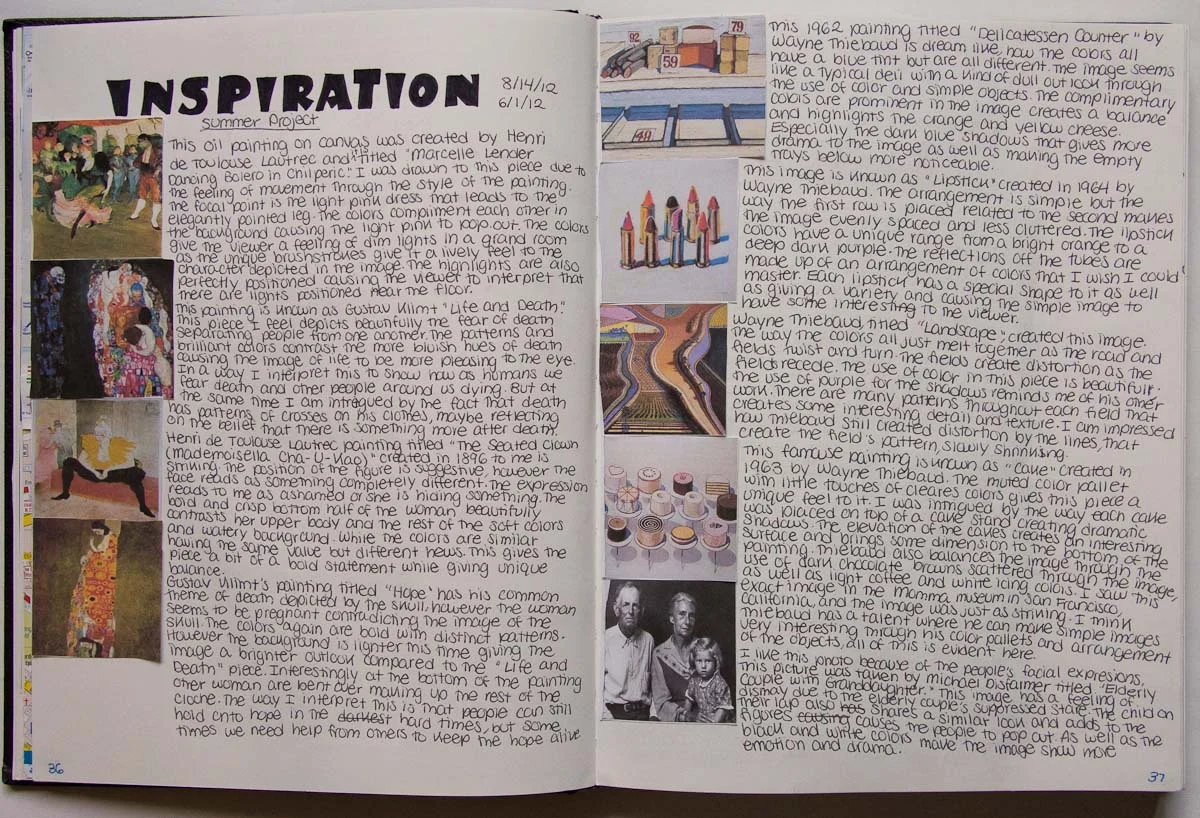 INSPIRATION
8/14/12
6/1/12
summer Project
This oil painting on canvas was created by Henri
de Toulouse Lautrec and is titled "Marcelle Lender
Dancing Bolero in Chilperic." I was drawn to this piece due to
the feeling of movement through the style of the painting.
The focal point is the light pink dress that leads to the
elegantly pointed leg. The colors compliment each other in
the background causing the light pink to pop out. The colors
give the viewer a feeling of dim lights in a grand room
as the unique brushstrokes give it a lively feel to the
character depicted in the image. The highlights are also
perfectly positioned causing the viewer to interpret that
there are lights positioned near the floor.
This painting is known as Gustav Klimt "Life and Death".
This piece I feel depicts beautifully the fear of death
separating people from one another. The patterns and
brilliant colors contrast the more bluish hues of death
causing the image of life to be more pleasing to the eye.
In a way I interpret this to show how as humans we
fear death and other people around us dying. But at
the same time I am intregued by the fact that death
has patterns of crosses on his clothes, maybe reflecting
on the belief that there is something more after death.
Henri de Toulouse Lautrec painting titled "The Seated Clown
(mademoisella Cha-U-Kao)" created in 1896 to me is
striking. The position of the figure is suggestive, however the
face reads as something completely different. The expression
reads to me as ashamed or she is hiding something. The
bold and crisp bottom half of the woman beautifully
contrasts her upper body and the rest of the soft colors
and watery background. While the colors are similar
having the same value but different hews. This gives the
piece a bit of a bold statement while giving unique
balance.
Gustav Klimt's painting titled "Hope" has his common
theme of death depicted by the skull, however the woman
seems to be pregnant contradicting the image of the
skull. The colors again are bold with distinct patterns.
However the background is lighter this time giving the
image a brighter outlook compared to the "Life and
Death" piece. Interestingly at the bottom of the painting
other woman are bent over making up the rest of the
cloche. The way I interpret this is that people can still
hold onto hope in the darkest hard times, but some
times we need help from others to keep the hope alive
36
92
59
79
49
This 1962 painting titled "Delicatessen Counter" by
Wayne Thiebaud is dream like, how the colors all
have a blue tint but are all different. The image seems
like a typical deli with a kind of dull out look through
the use of color and simple objects. The complimentary
colors are prominent in the image creates a balance
and highlights the orange and yellow cheese.
Especially the dark blue shadows that gives more
drama to the image as well as making the empty
trays below more noticeable.
This image is known as "Lipstick" created in 1964 by
Wayne Thiebaud. The arrangement is simple but the
way the first row is placed related to the second makes
the image evenly spaced and less cluttered. The lipstick
colors have a unique range from a bright orange to a
deep dark purple. The reflections off the tubes are
made up of an arrangement of colors that I wish I could
master. Each lipstick has a special shape to it as well
as giving a variety and causing the simple image to
have some interesting to the viewer.
Wayne Thiebaud, titled "Landscape", created this image.
The way the colors all just melt together as the road and
fields recede. The fields create distortion as the
fields twist and turn. The use of color in this piece is beautiful.
The use of purple for the shadows reminds me of his other
work. There are many patterns throughout each field that
creates some interesting detail and texture. I am impressed
how Thiebaud still created distortion by the lines, that
create the field's pattern, slowly shrinking.
This famouse painting is known as "Cake" created in
1963 by Wayne Thiebaud. The muted color pallet
with little touches of cleares colors gives this piece a
unique feel to it. I was intrigued by the way each cake
was placed on top of a cake stand creating dramatic
shadows. The elevation of the cakes creates an interesting
surface and brings some dimension to the bottom of the
painting. Thiebaud also balances the image through the
use of dark chocolate browns scattered through the image,
as well as light coffee and white icing colors. I saw this
exact image in the Momma museum in San Francisco,
California, and the image was just as striking. I think
Thiebaud has a talent where he can make simple images
very interesting through his color pallets and arrangement
of the objects, all of this is evident here.
I like this photo because of the people's facial expresions,
This picture was taken by michael Disfarmer titled "Elderly
Couple with Granddaughter." This image has a feeling of
dismay due to the elderly couple's suppressed state. The child on
their lap also has shares a similar look and adds to the
figures causing causes the people to pop out. As well as the
black and white colors make the image show more
emotion and drama.
37